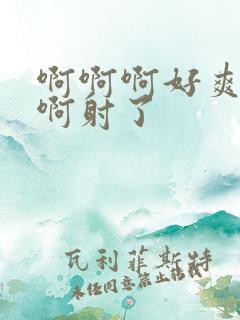 啊啊啊好爽
啊射了
瓦利菲斯特
未经同意禁止转载